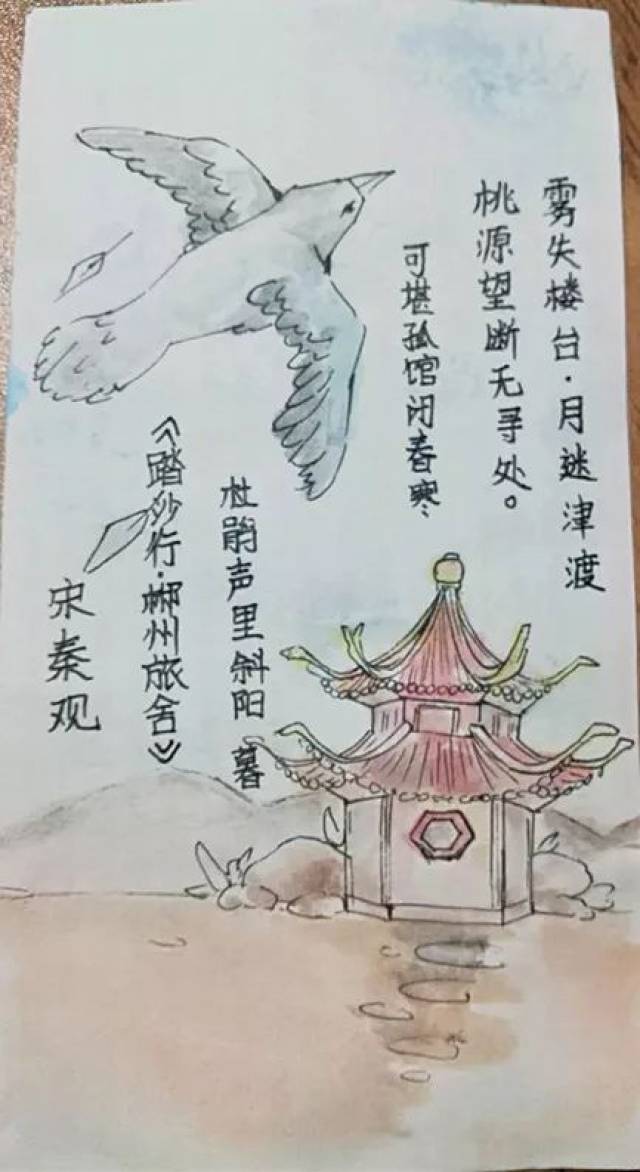 雾失楼台·月迷津渡
桃源望断无寻处。
可堪孤馆闭春寒
杜鹃声里斜阳暮
《踏莎行·郴州旅舍》
宋秦观